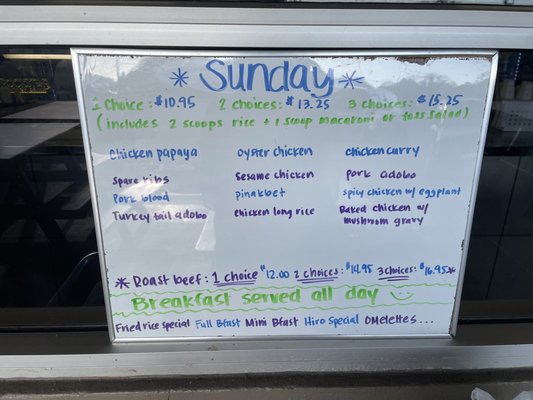 * Sunday *
1 Choice: $10.95 2 choices: $13.25 3 choices: $15.25
(includes 2 scoops rice + 1 scoop macaroni or toss salad)
chicken papaya oyster chicken chicken curry
spare ribs sesame chicken pork adobo
Pork blood pinakbet spicy chicken w/ eggplant
Turkey tail adobo chicken long rice Baked chicken w/
mushroom gravy
* Roast beef: 1 choice $12.00 2 choices: $14.95 3 choices: $16.95 *
Breakfast served all day
Fried rice special Full Bfast Mini Bfast Hiro Special Omelettes...